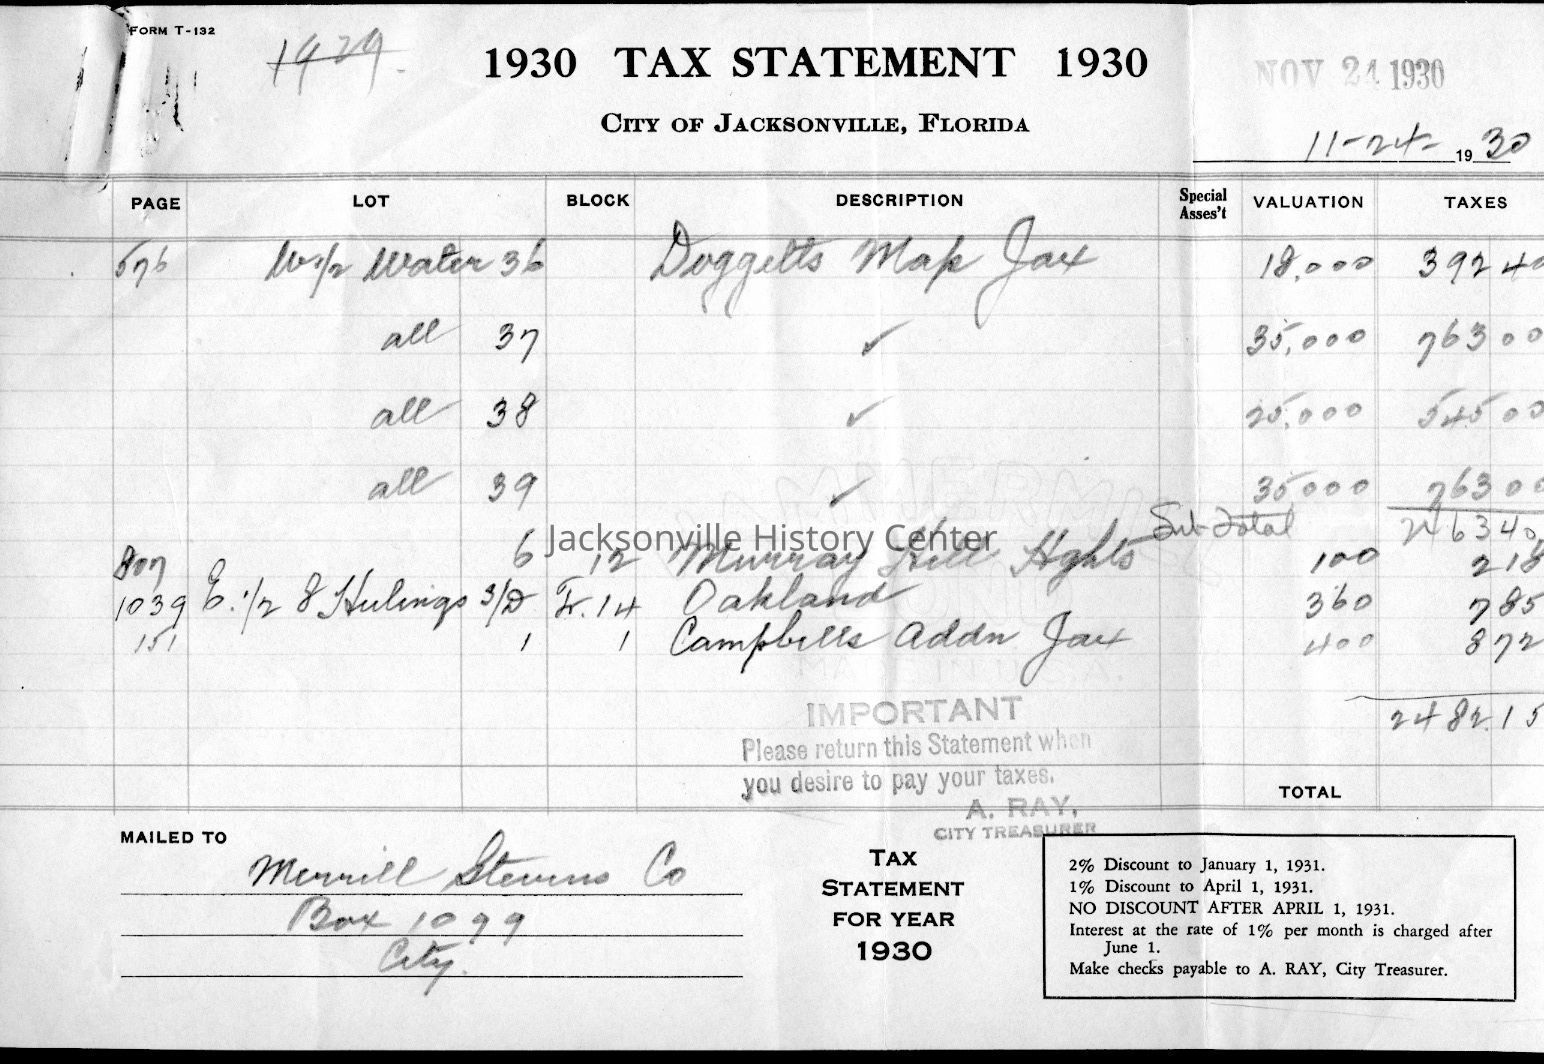 FORM T-132
1929
1930 TAX STATEMENT 1930
NOV 24 1930
CITY OF JACKSONVILLE, FLORIDA
11-24- 1930
PAGE LOT BLOCK DESCRIPTION Special Asses't VALUATION TAXES
576 W 1/2 Water 36 Doggetts Map Jax 18,000 392 40
all 37 ✓ 35,000 763 00
all 38 ✓ 25,000 545 00
all 39 ✓ 35000 763 00
Sub Total 2463 40
Jacksonville History Center
807 6 12 Murray Hill Hghts 100 218
1039 E. 1/2 8 Hulings S/D Tr. 14 Oakland 360 785
151 1 1 Campbells Addn Jax 400 872
2482.15
IMPORTANT
Please return this Statement when
you desire to pay your taxes.
A. RAY,
CITY TREASURER
TOTAL
MAILED TO
Merrill Stevens Co
Box 1099
City.
TAX
STATEMENT
FOR YEAR
1930
2% Discount to January 1, 1931.
1% Discount to April 1, 1931.
NO DISCOUNT AFTER APRIL 1, 1931.
Interest at the rate of 1% per month is charged after
June 1.
Make checks payable to A. RAY, City Treasurer.